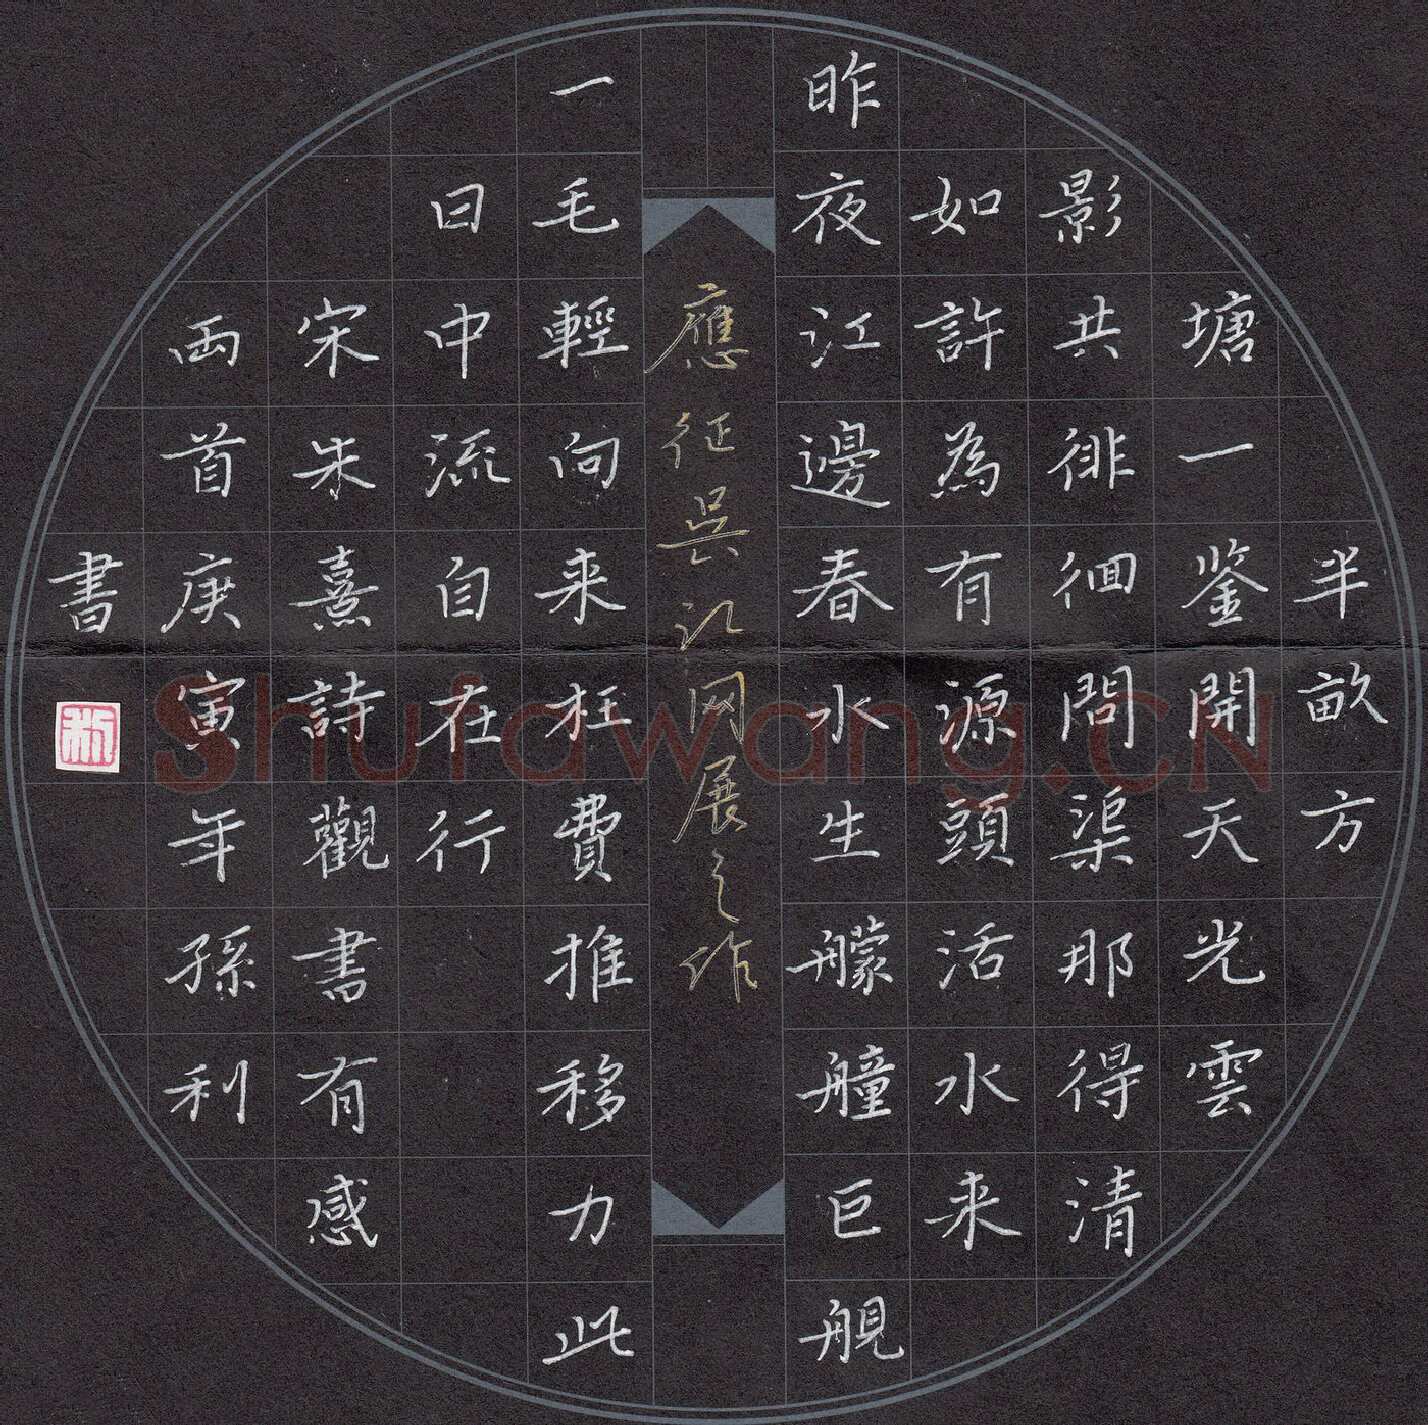 半畝方
塘一鉴開天光雲
影共徘徊問渠那得清
如許為有源頭活水来
昨夜江邊春水生艨艟巨舰
應征吴江网展之作
一毛輕向来枉費推移力此
日中流自在行
宋朱熹詩觀書有感
两首庚寅年孫利
書
Shufawang.CN